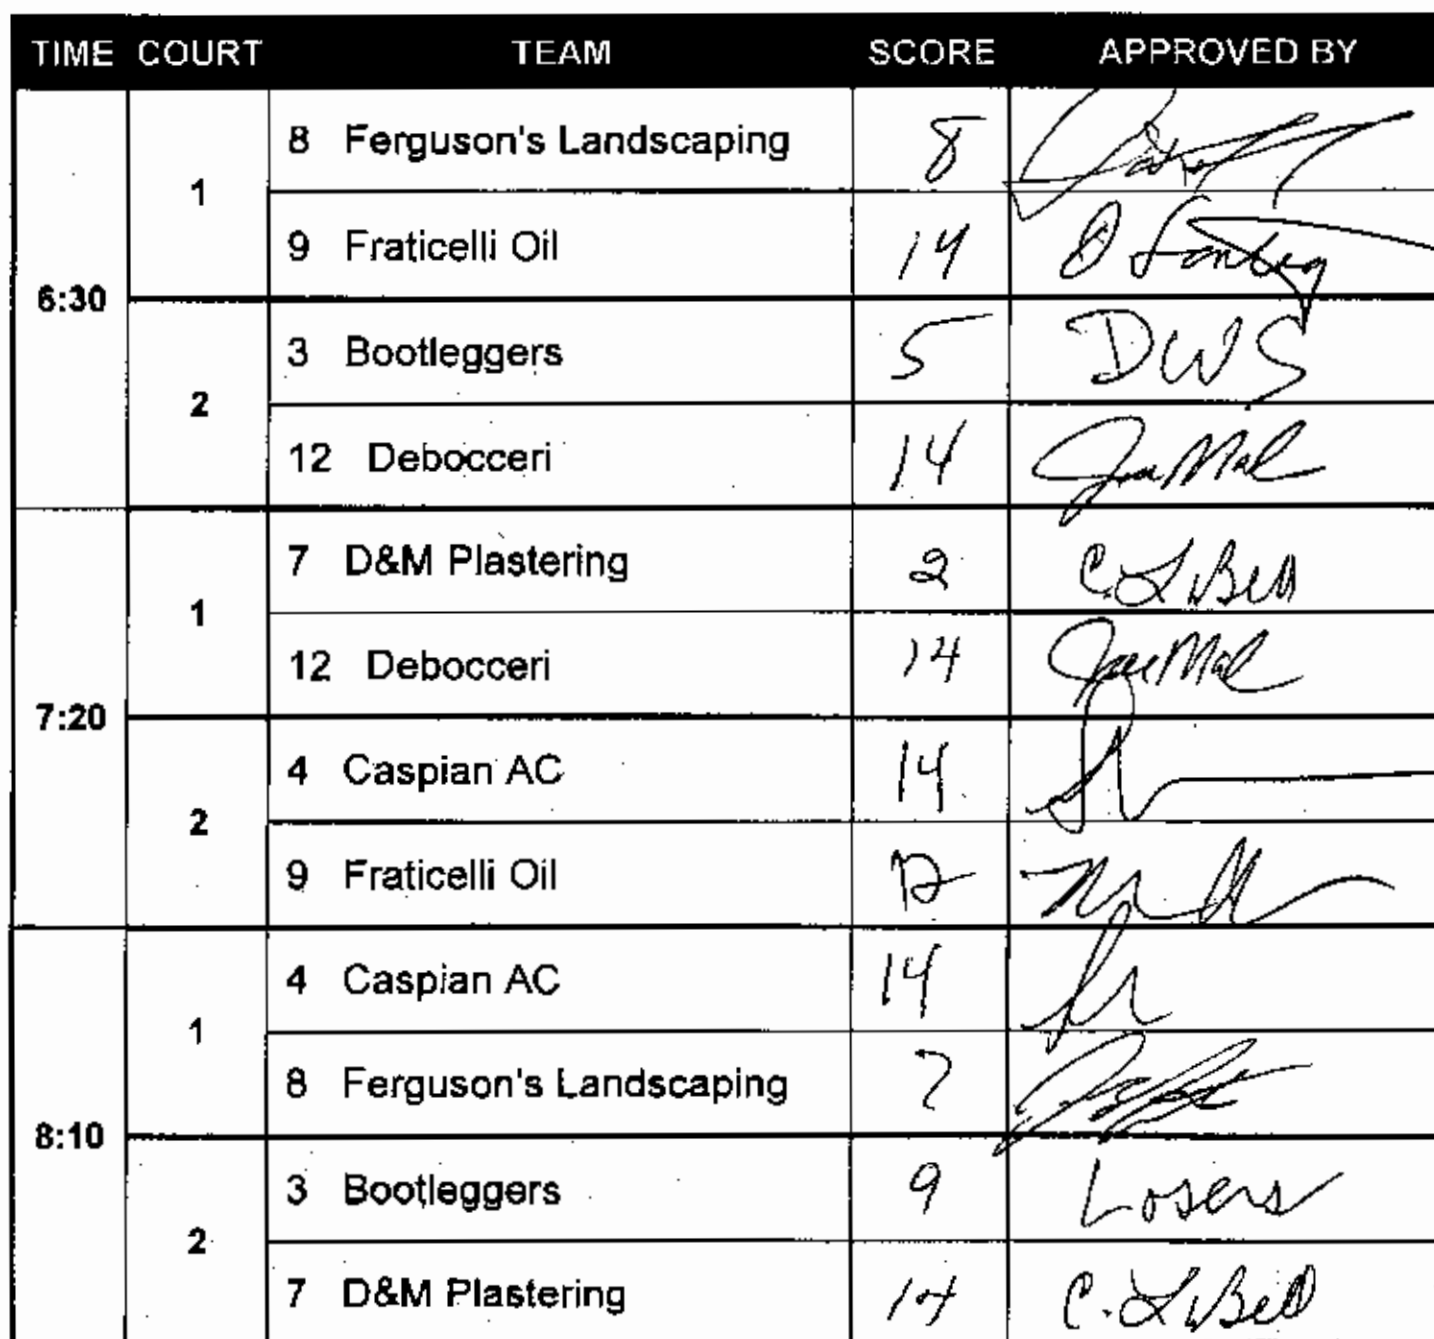 TIME COURT TEAM SCORE APPROVED BY
6:30
1
8 Ferguson's Landscaping 8
9 Fraticelli Oil 14
2
3 Bootleggers 5 DWS
12 Debocceri 14
7:20
1
7 D&M Plastering 2
12 Debocceri 14
2
4 Caspian AC 14
9 Fraticelli Oil 12
8:10
1
4 Caspian AC 14
8 Ferguson's Landscaping 7
2
3 Bootleggers 9 Losers
7 D&M Plastering 14